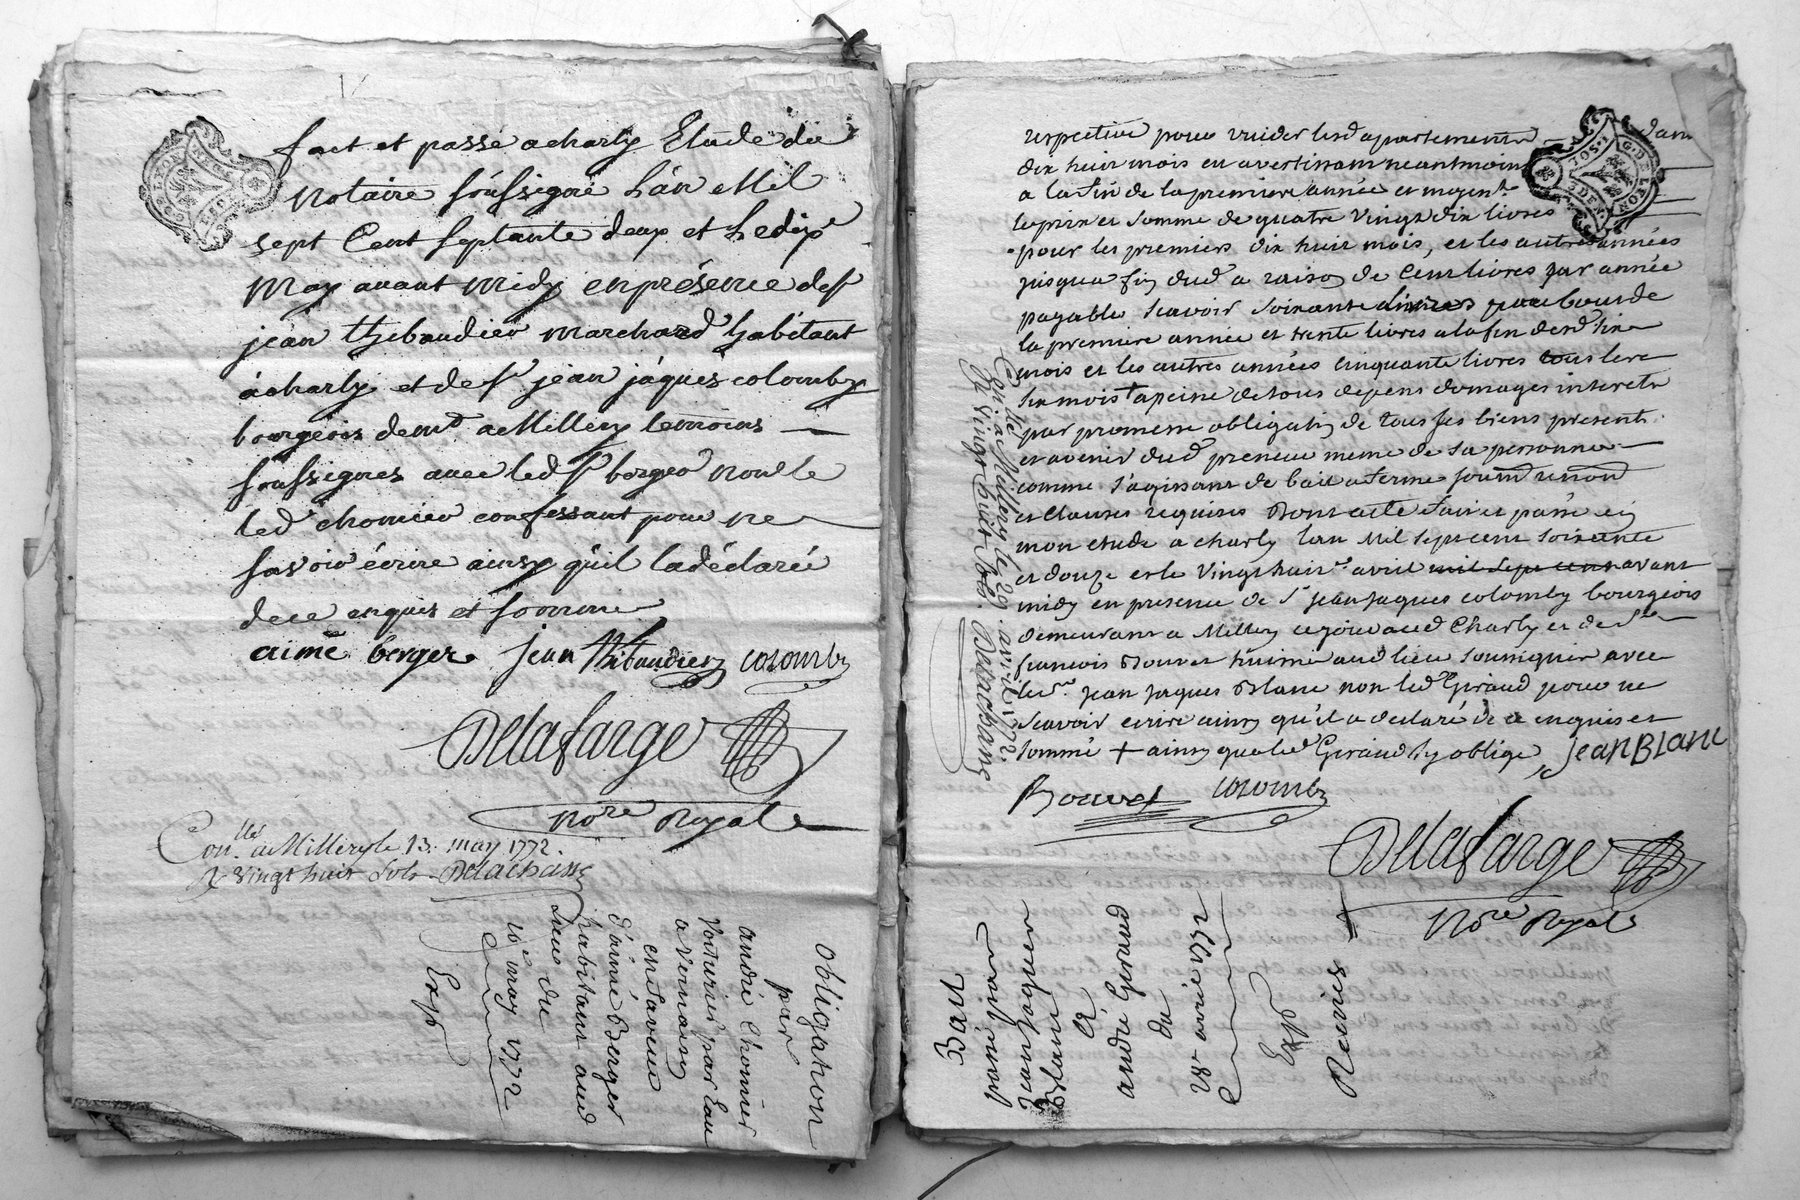 fait et passé a charly Etude du
notaire soussigné L'an Mil
sept Cent septante deux et Le dix
May avant Midy en présence de sr
jean thibaudier marchand habitant
à charly et de sr jean jáques colomby
bourgeois demt a Millery temoins
soussignes avec led sr berger non le
led chomier confessant pour ne
savoir écrire ainsy qu'il la déclaré
de ce enquis et sommé
aimé berger jean thibaudier colomby
Delafarge
nore Royal
Conllé a Millery le 13. may 1772.
R vingt huit sols Delachass
obligation
par
andré Chomier
voiturier par Eau
a vernaison
en faveur
d'aimé Berger
habitant aud
lieu du
10e may 1772
Exp
respective pour vuider lesd appartements dans
dix huit mois en avertissant neantmoins
a la fin de la premiere année et moyent
le prix et somme de quatre vingt dix livres
pour les premiers dix huit mois, et les autres années
jusqua fin dud a raison de Cent livres par année
payable scavoir soixante livres pour bout de
la premiere année et trente livres a la fin desd six
mois et les autres années cinquante livres tous les
six mois + a peine de tous depens domages interets
par promesse obligation de tous ses biens presents
et avenir dud preneur meme de sa personne
comme s'agissant de bail a ferme soumons renons
et Clauses requises Dont acte fait et passé en
mon etude a charly lan Mil sept cent soixante
et douze et le vingt huit avril mil sept cent avant
midy en presence de sr jean jaques colomby bourgeois
demeurant a Millery ce jour aud Charly et de sr
francois Bouvet aud lieu soussignés avec
led sr jean jaques Blanc non led Giraud pour ne
scavoir ecrire ainsy qu'il a declaré de ce enquis et
sommé + ainsy que led Giraud sy oblige, jean BLanc
Bouvet colomby
Delafarge
Nore Royal
Conllé a Millery le 29. avril 1772.
R vingt huit sols. Delachass
Bail
par
jean jaques
Blanc
à
andré Giraud
du
28 avril 1772
Exp